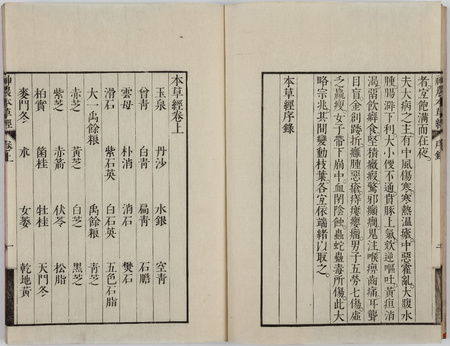 神農本草經 序錄
者宜飽滿而在夜。
夫大病之主有中風傷寒寒熱溫瘧中惡霍亂大腹水
腫腸澼下利大小便不通賁肫上氣欬逆嘔吐黃疸消
渴留飲癖食堅積癥瘕驚邪癲癇鬼注喉痺齒痛耳聾
目盲金創踒折癰腫惡瘡痔瘻癭瘤男子五勞七傷虛
乏羸瘦女子帶下崩中血閉陰蝕蟲蛇蠱毒所傷此大
略宗兆其間變動枝葉各宜依端緒以取之。
本草經序錄
本草經卷上
玉泉 丹沙 水銀 空青
曾青 白青 扁青 石膽
雲母 朴消 消石 礬石
滑石 紫石英 白石英 五色石脂
大一禹餘粮 禹餘粮 青芝
赤芝 黃芝 白芝 黑芝
紫芝 赤箭 伏苓 松脂
柏實 箘桂 牡桂 天門冬
麥門冬 朮 女萎 乾地黃
神農本草經 卷上 一